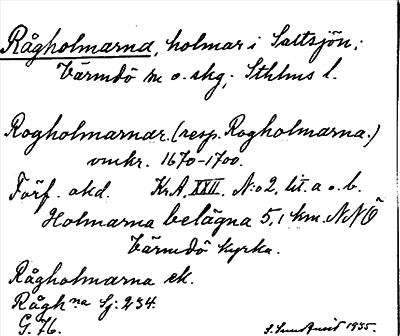 Rågholmarna, holmar i Saltsjön;
Värmdö sn o. skg; Sthlms l.
Rogholmarnar. (resp. Rogholmarna.)
omkr. 1670-1700.
Förf. okd. Kr.A. XXII. N:o 2, lit. a o. b.
Holmarna belägna 5,1 km. NNÖ
Värmdö kyrka.
Rågholmarna ek.
Rågh:na Sj: 234.
G. 76.
1935.